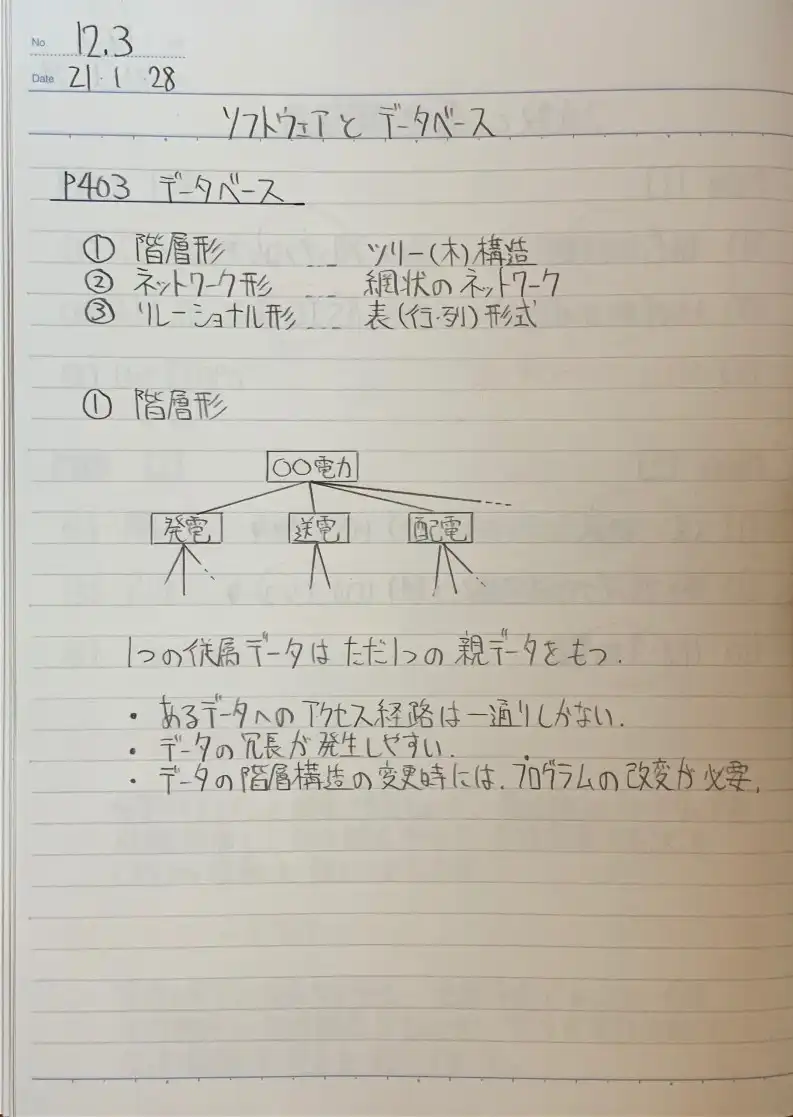 No 12.3
Date 21・1・28
ソフトウェアと データベース
P403 データベース
① 階層形 --- ツリー(木)構造
② ネットワーク形 --- 網状のネットワーク
③ リレーショナル形 --- 表(行・列)形式
① 階層形
○○電力
発電 送電 配電
1つの従属データはただ1つの親データをもつ.
・ あるデータへのアクセス経路は一通りしかない.
・ データの冗長が発生しやすい.
・ データの階層構造の変更時には、プログラムの改変が必要.